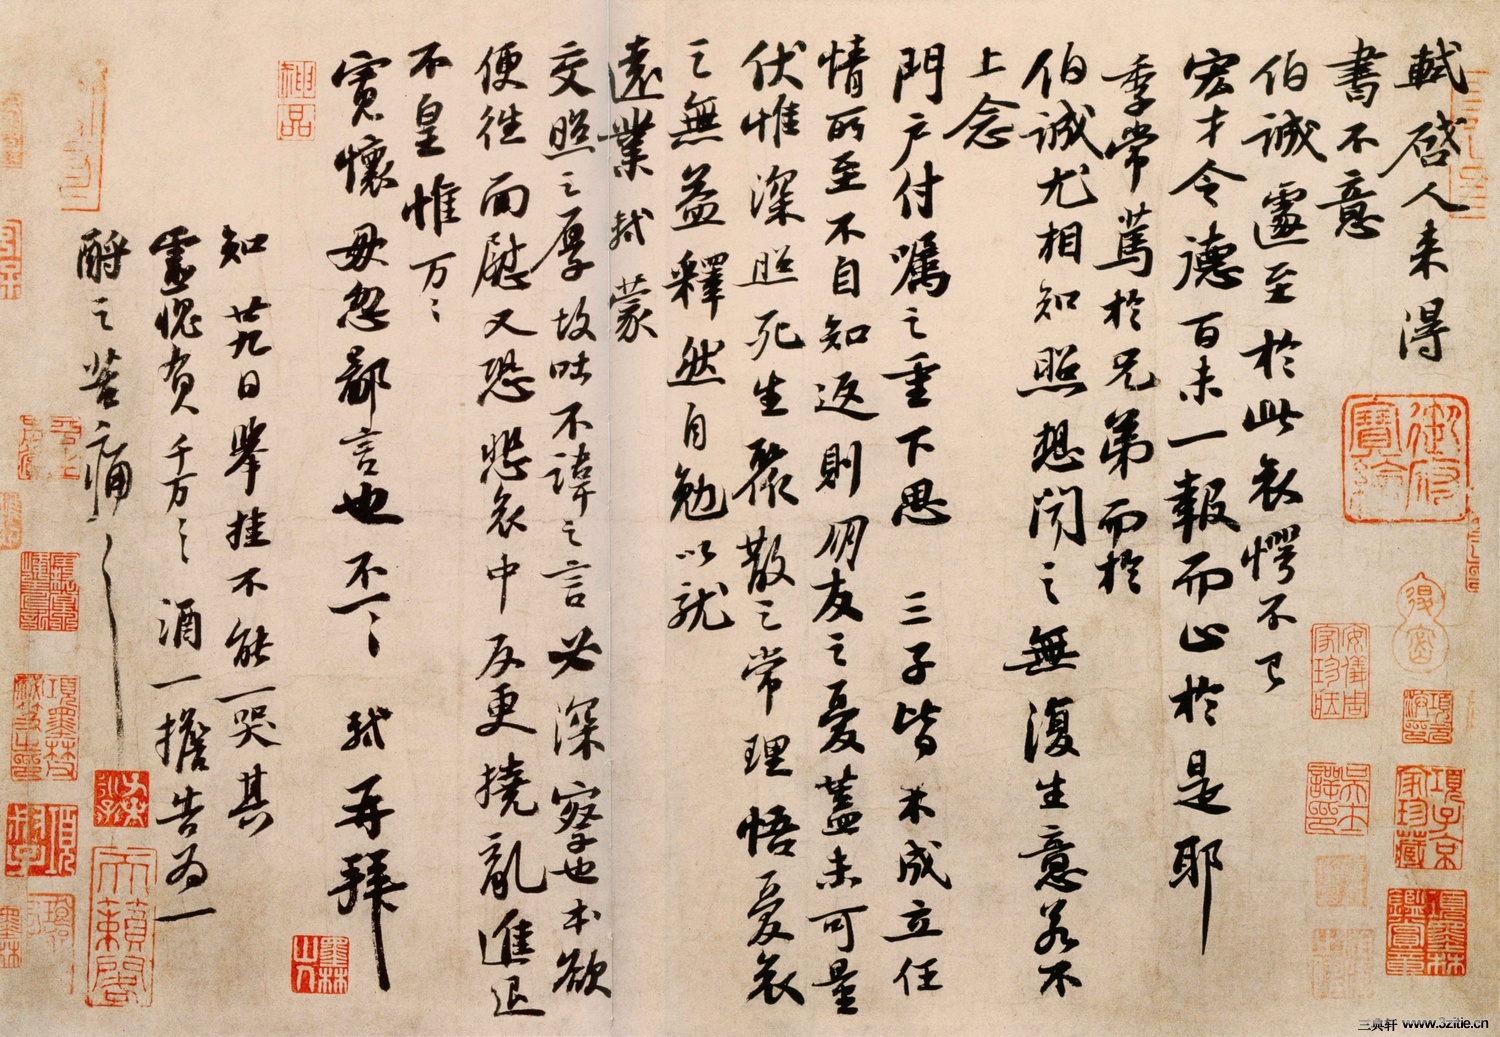 軾啓人来得
書不意
伯誠遽至於此哀愕不已
宏才令德百未一報而止於是耶
季常篤於兄弟而於
伯誠尤相知照想聞之無復生意若不
上念
門户付嘱之重下思三子皆未成立任
情所至不自知返則朋友之憂蓋未可量
伏惟深照死生聚散之常理悟憂哀
之無益釋然自勉以就
遠業軾蒙
交照之厚故吐不諱之言必深察也本欲
便往面慰又恐悲哀中反更撓亂進退
不皇惟万〻
寬懷毋忽鄙言也不一〻軾再拜
知廿九日舉掛不能一哭其
靈愧負千万〻酒一擔告为一
酹之苦痛〻
御府寶繪
神品
安儀周家珍藏
項子京家珍藏
項墨林鑑賞章
墨林山人
天籟閣
三典轩 www.3zitie.cn